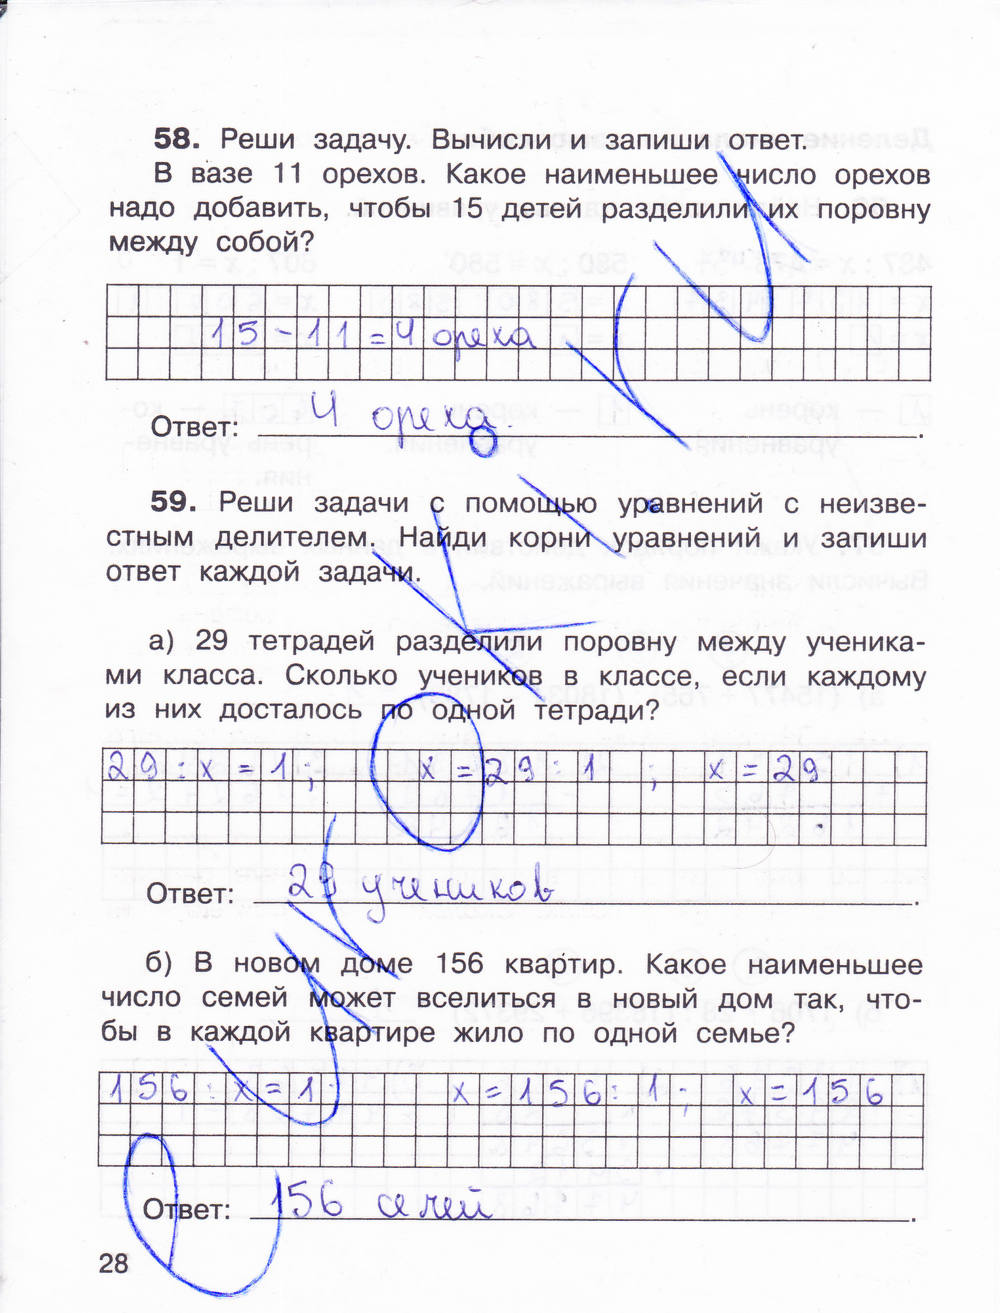 58. Реши задачу. Вычисли и запиши ответ.
В вазе 11 орехов. Какое наименьшее число орехов
надо добавить, чтобы 15 детей разделили их поровну
между собой?
15 - 11 = 4 ореха
Ответ: 4 ореха.
59. Реши задачи с помощью уравнений с неизве-
стным делителем. Найди корни уравнений и запиши
ответ каждой задачи.
а) 29 тетрадей разделили поровну между ученика-
ми класса. Сколько учеников в классе, если каждому
из них досталось по одной тетради?
29 : х = 1; х = 29 : 1 ; х = 29
Ответ: 29 учеников.
б) В новом доме 156 квартир. Какое наименьшее
число семей может вселиться в новый дом так, что-
бы в каждой квартире жило по одной семье?
156 : х = 1; х = 156 : 1; х = 156
Ответ: 156 семей.
28